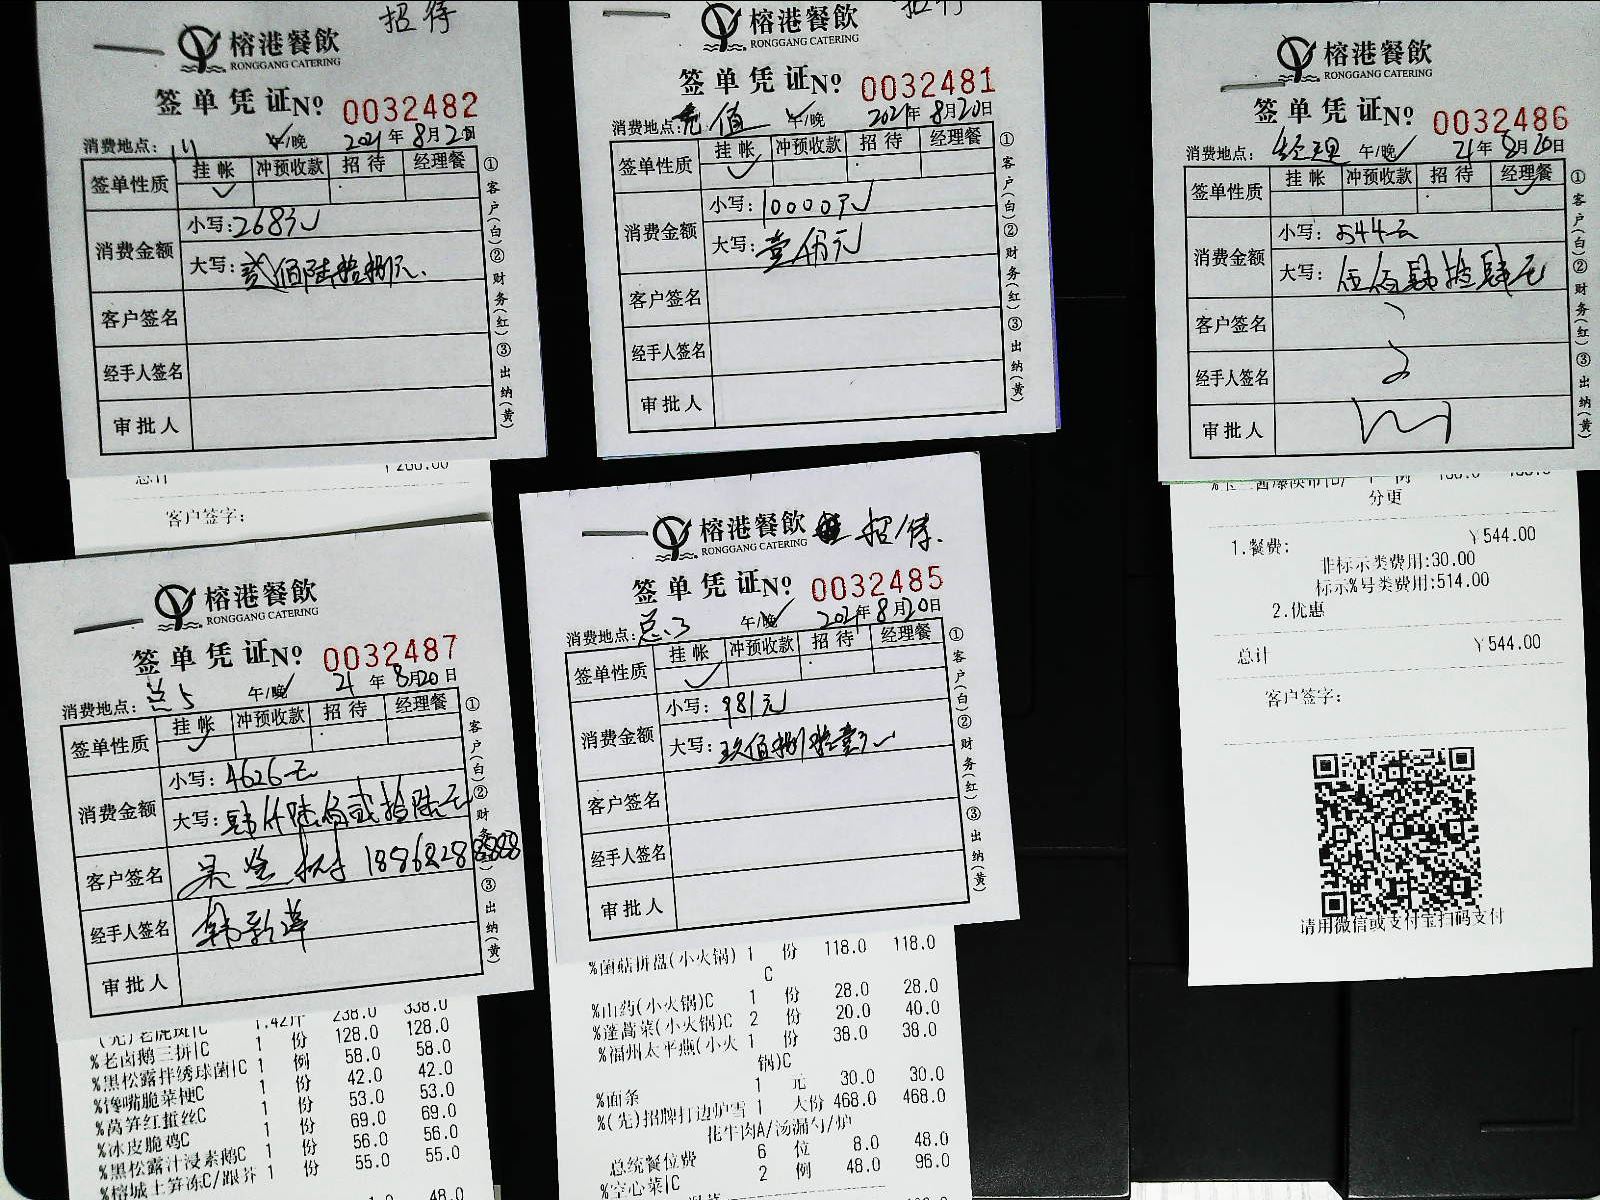 招待
榕港餐飲
RONGGANG CATERING
签单凭证No 0032482
消费地点: 午/晚 2021年8月20日
签单性质 挂帐 冲预收款 招待 经理餐
消费金额 小写:268元
大写:贰佰陆拾捌元
客户签名
经手人签名
审批人
①客户(白)②财务(红)③出纳(黄)
总计
¥268.00
客户签字:
招待
榕港餐飲
RONGGANG CATERING
签单凭证No 0032481
消费地点:充值 午/晚 2021年8月20日
签单性质 挂帐 冲预收款 招待 经理餐
消费金额 小写:10000元
大写:壹万元
客户签名
经手人签名
审批人
①客户(白)②财务(红)③出纳(黄)
榕港餐飲
RONGGANG CATERING
签单凭证No 0032486
消费地点:经理 午/晚 21年8月20日
签单性质 挂帐 冲预收款 招待 经理餐
消费金额 小写:544元
大写:伍佰肆拾肆元
客户签名
经手人签名
审批人
①客户(白)②财务(红)③出纳(黄)
分更
1.餐费: ¥544.00
非标示类费用:30.00
标示%号类费用:514.00
2.优惠
总计 ¥544.00
客户签字:
请用微信或支付宝扫码支付
榕港餐飲
RONGGANG CATERING
签单凭证No 0032487
消费地点:总5 午/晚 21年8月20日
签单性质 挂帐 冲预收款 招待 经理餐
消费金额 小写:4626元
大写:肆仟陆佰贰拾陆元
客户签名
经手人签名
审批人
①客户(白)②财务(红)③出纳(黄)
(先)老虎斑|C 1.42斤 238.0 338.0
%老卤鹅三拼|C 1 份 128.0 128.0
%黑松露拌绣球菌|C 1 例 58.0 58.0
%馋嘴脆菜梗C 1 份 42.0 42.0
%莴笋红蜇丝C 1 份 53.0 53.0
%冰皮脆鸡C 1 份 69.0 69.0
%黑松露汁浸素鹅C 1 份 56.0 56.0
%榕城土笋冻C/跟芥 1 份 55.0 55.0
48.0
榕港餐飲 招待
RONGGANG CATERING
签单凭证No 0032485
消费地点:总3 午/晚 2021年8月20日
签单性质 挂帐 冲预收款 招待 经理餐
消费金额 小写:981元
大写:玖佰捌拾壹元
客户签名
经手人签名
审批人
①客户(白)②财务(红)③出纳(黄)
%菌菇拼盘(小火锅) 1 份 118.0 118.0
C
%山药(小火锅)C 1 份 28.0 28.0
%蓬蒿菜(小火锅)C 2 份 20.0 40.0
%福州太平燕(小火 1 份 38.0 38.0
锅)C
%面条 1 元 30.0 30.0
%(先)招牌打边炉雪 1 大份 468.0 468.0
花牛肉A/汤漏勺/炉
总统餐位费 6 位 8.0 48.0
%空心菜|C 2 例 48.0 96.0